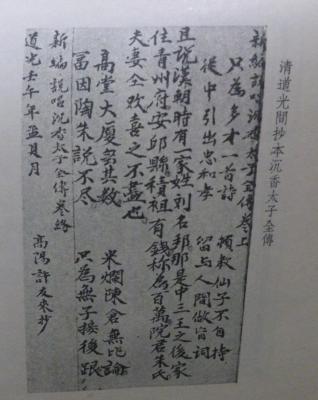 清道光間抄本沉香太子全傳
新編說唱沉香太子全傳卷上
只為多才一首詩　頓教仙子不自持
從中引出忠和孝　留與人間做旨詞
且說漢朝時有一家姓刘名邦那是中三王之後家
住青州府安邱縣積祖有錢称為百萬院君朱氏
夫妻全欢喜之不盡也
高堂大厦無其数　米爛陳倉無比論
冨因陶朱說不尽　只為無子接後跟
新編說唱沉香太子全傳卷終
道光壬午年孟夏月　高陽許友來抄